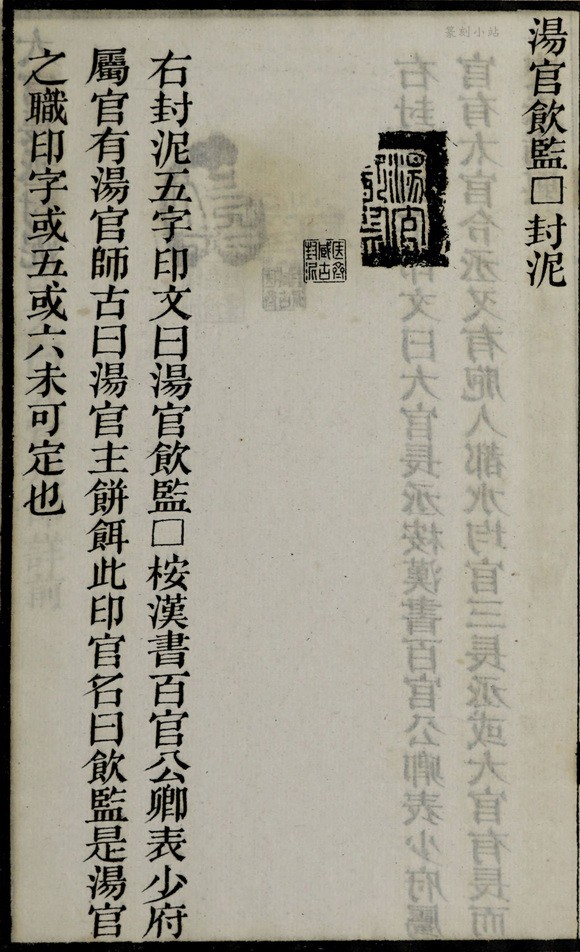 湯官飲監□封泥
篆刻小站
湯官飲監
右封泥五字印文曰湯官飲監□桉漢書百官公卿表少府
屬官有湯官師古曰湯官主餅餌此印官名曰飲監是湯官
之職印字或五或六未可定也